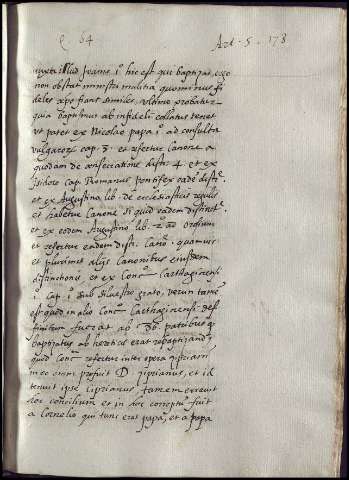 q. 64 Art. 5. 178
iuxta illud Joanis 1º hic est qui baptizat ergo
non obstat ministri malitia quominus fi
deles xpo fiant similes ultimo probatur
quia baptismus ab infideli collatus tenet
ut patet ex Nicolao papa 1º ad consulta
vulgarorum cap. 3. et refertur Canone a
quodam de consecratione distī. 4 et ex
Isidoro cap. Romanus pontifex eadē distī.
et ex Augustino lib. de ecclesiasticis regulis
et habetur Canone si quis eadem distinct.
et ex eodem Augustino lib. 2º ad
et refertur eadem disti. Canō. quamuis
et pluribus alijs Canonibus eiusdem
distinctionis et ex Conc. Carthaginensi
1. cap. 1º sub silvestro grato, verun tamē
est quod in alio Conc. Carthaginensi def
finitum fuerat ab 86. patribus q
baptizatus ab heretico erat rebaptizandus
quod Conc. refertur inter opera cipriani
in eo enim profuit D. ciprianus, et id
tenuit ipse ciprianus tamem erravit
hoc concilium et in hoc fuit
a Cornelio qui tunc erat papa, et a papa